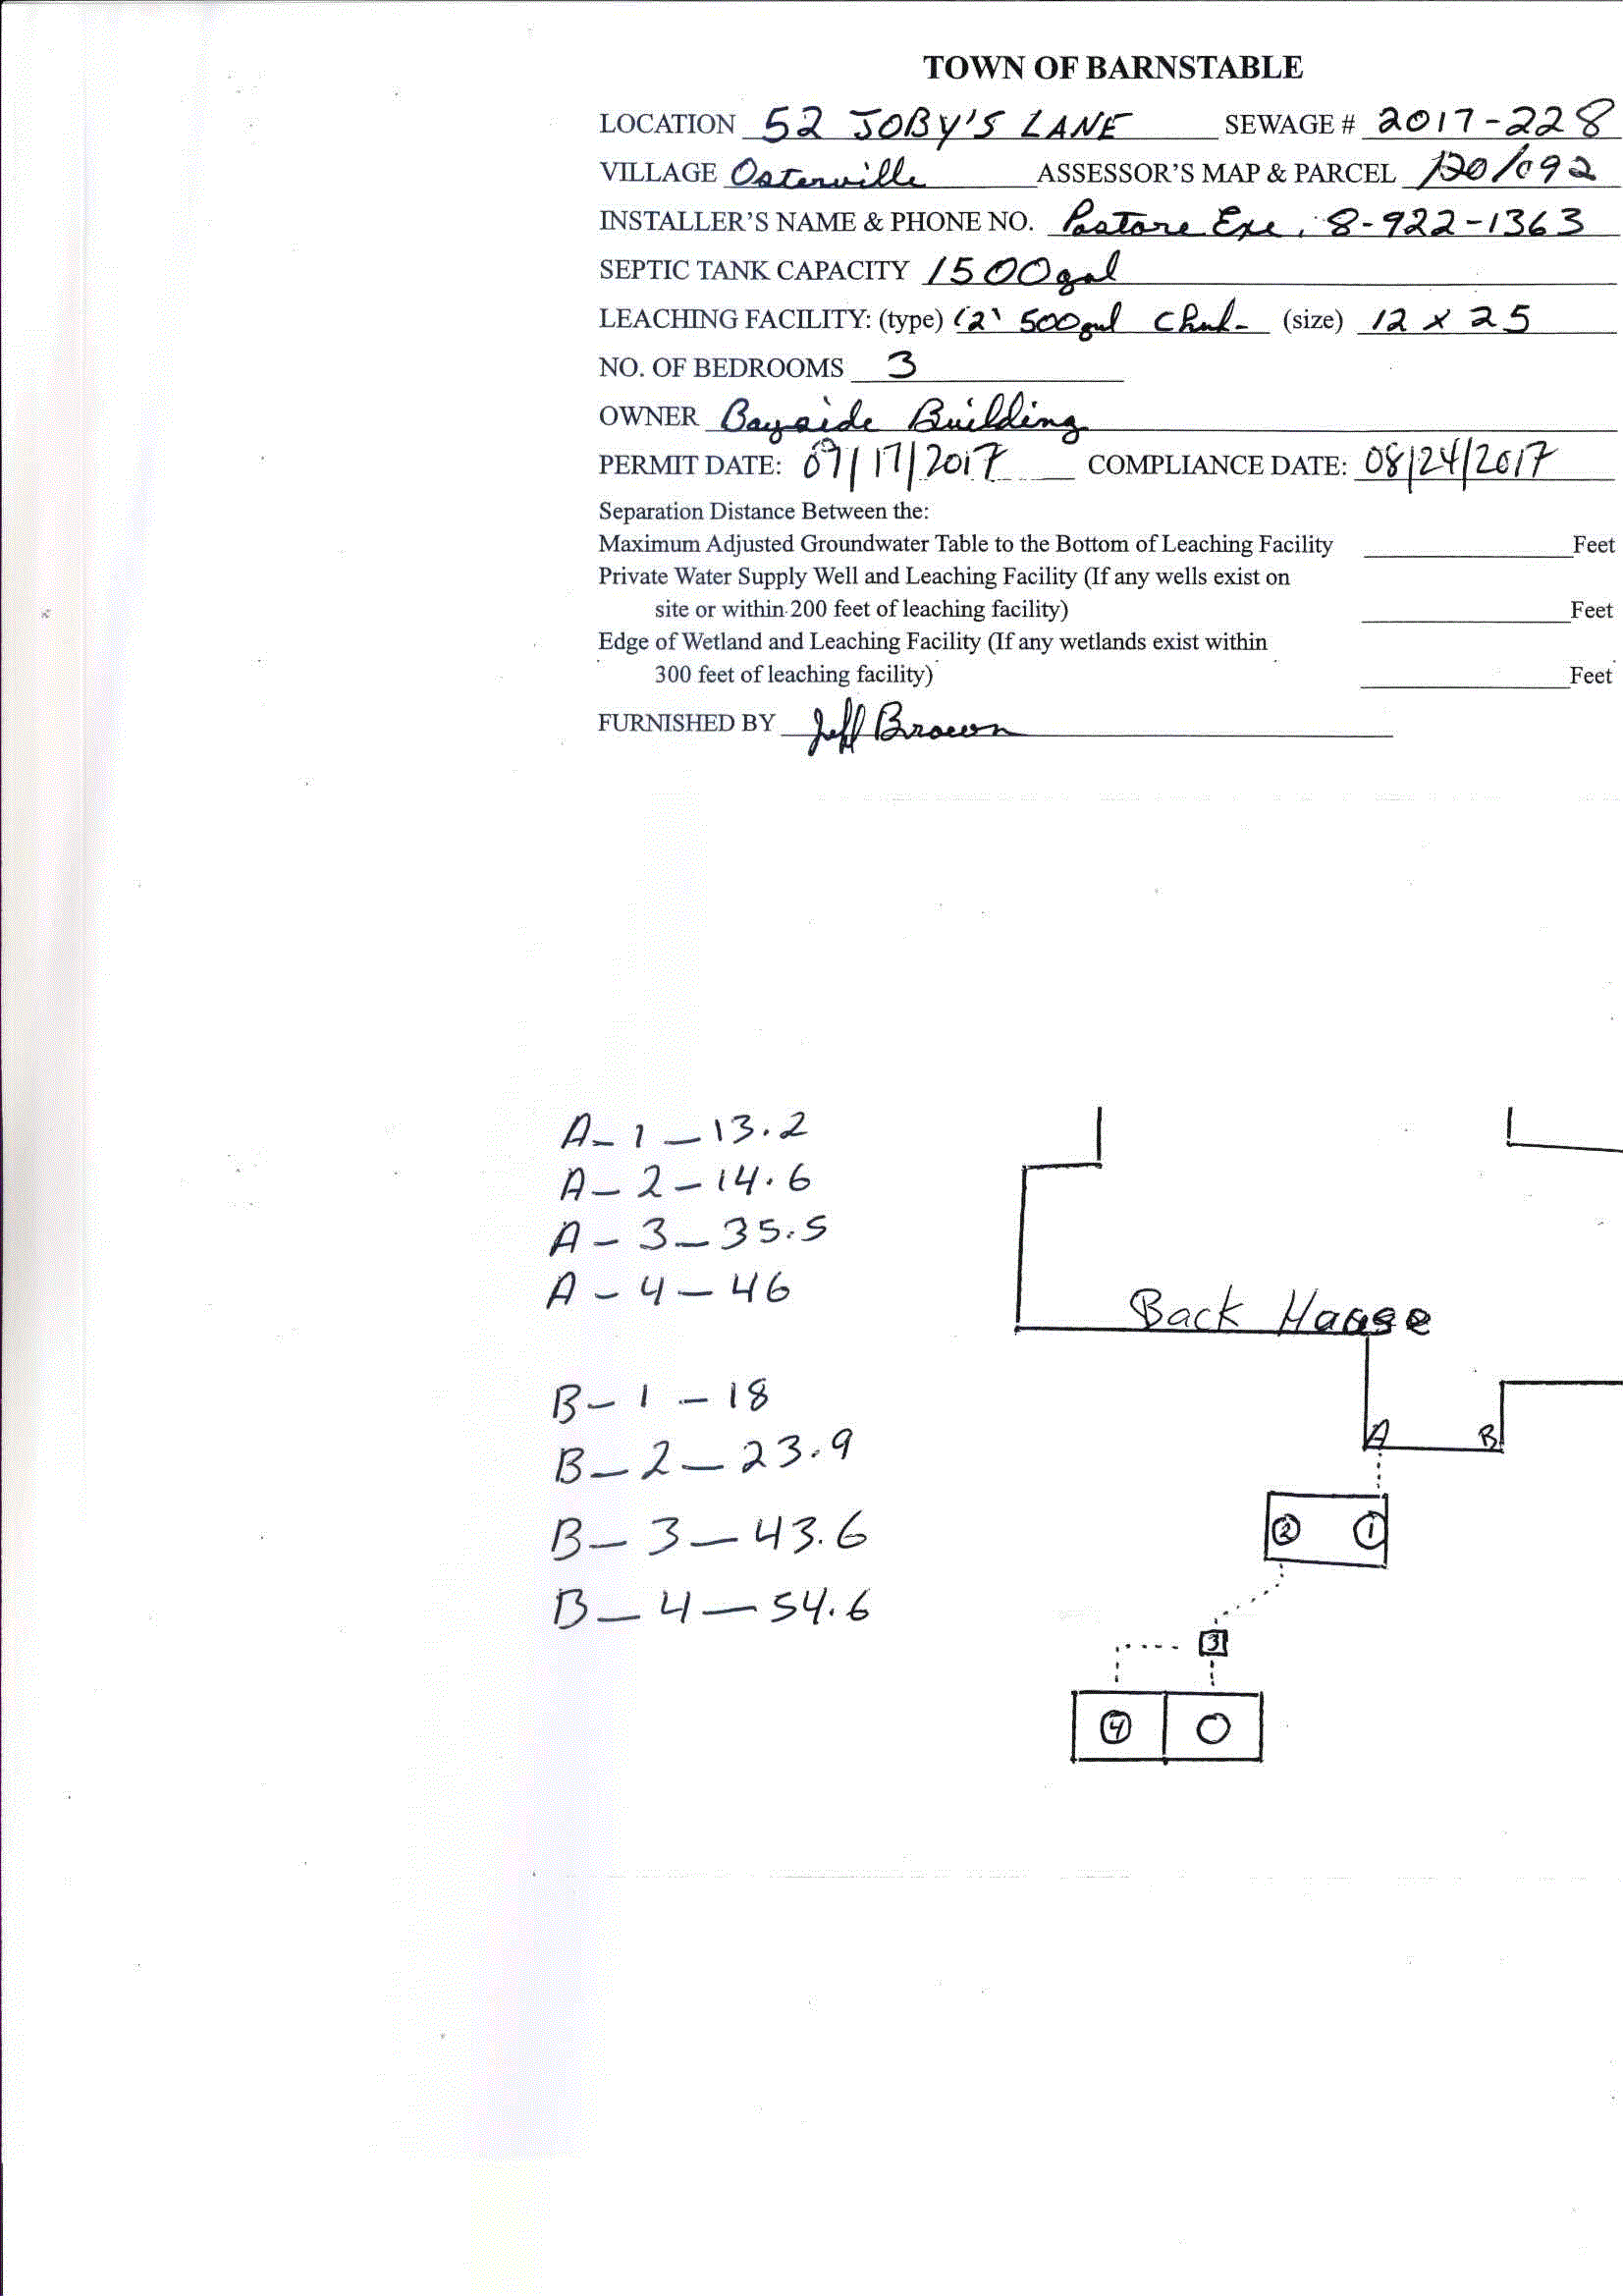 TOWN OF BARNSTABLE
LOCATION 52 JOBY'S LANE SEWAGE # 2017-228
VILLAGE Osterville ASSESSOR'S MAP & PARCEL 120/092
INSTALLER'S NAME & PHONE NO. Pastore Exc. 8-922-1363
SEPTIC TANK CAPACITY 1500gal
LEACHING FACILITY: (type) (2) 500gal Chmb- (size) 12 x 25
NO. OF BEDROOMS 3
OWNER Bayside Building
PERMIT DATE: /17/2017 COMPLIANCE DATE: 08/24/2017
Separation Distance Between the:
Maximum Adjusted Groundwater Table to the Bottom of Leaching Facility Feet
Private Water Supply Well and Leaching Facility (If any wells exist on
site or within 200 feet of leaching facility) Feet
Edge of Wetland and Leaching Facility (If any wetlands exist within
300 feet of leaching facility) Feet
FURNISHED BY Jeff Brown
A-1-13.2
A-2-14.6
A-3-35.5
A-4-46
Back House
B-1-18
B-2-23.9
B-3-43.6
B-4-54.6
A B
2 1
3
4